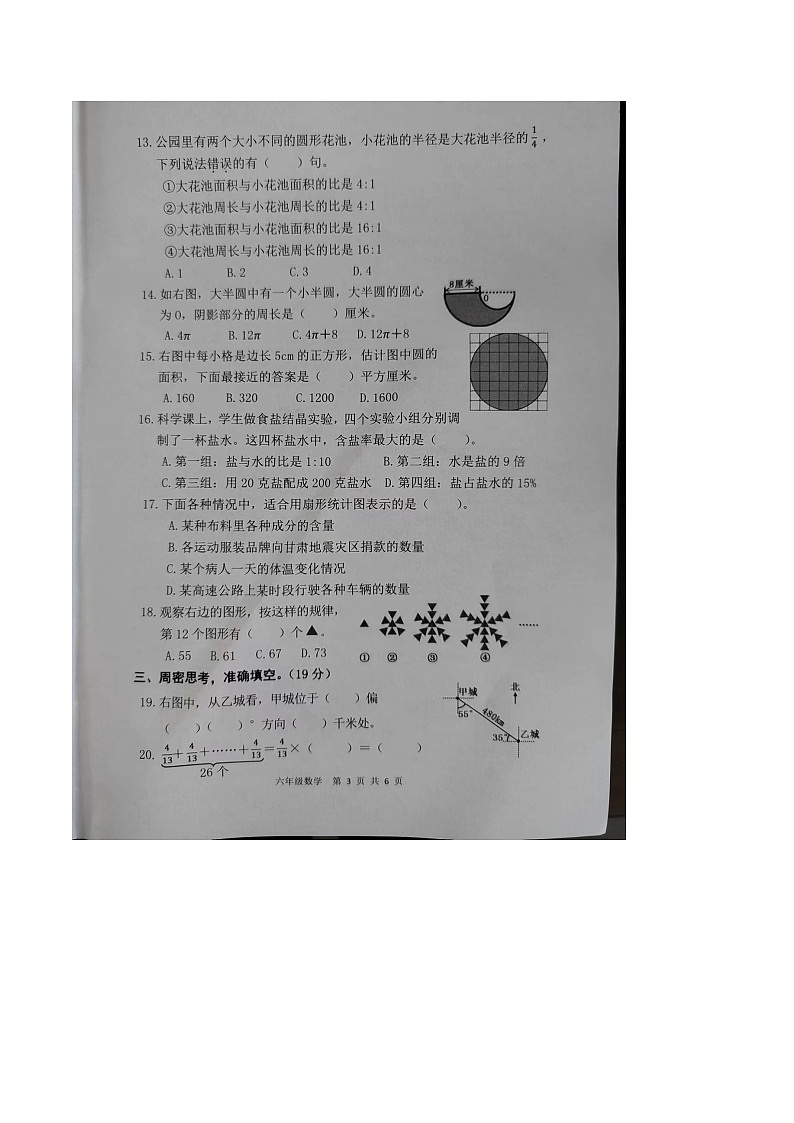 13.公园里有两个大小不同的圆形花池，小花池的半径是大花池半径的1/4，
下列说法错误的有（    ）句。
①大花池面积与小花池面积的比是 4:1
②大花池周长与小花池周长的比是 4:1
③大花池面积与小花池面积的比是 16:1
④大花池周长与小花池周长的比是 16:1
A.1    B.2    C.3    D.4
14.如右图，大半圆中有一个小半圆，大半圆的圆心
为 O，阴影部分的周长是（    ）厘米。
A.4π    B.12π    C.4π+8    D.12π+8
8厘米
O
15.右图中每小格是边长 5cm 的正方形，估计图中圆的
面积，下面最接近的答案是（    ）平方厘米。
A.160    B.320    C.1200    D.1600
16.科学课上，学生做食盐结晶实验，四个实验小组分别调
制了一杯盐水。这四杯盐水中，含盐率最大的是（    ）。
A.第一组：盐与水的比是 1:10    B.第二组：水是盐的 9 倍
C.第三组：用 20 克盐配成 200 克盐水    D.第四组：盐占盐水的 15%
17.下面各种情况中，适合用扇形统计图表示的是（    ）。
A.某种布料里各种成分的含量
B.各运动服装品牌向甘肃地震灾区捐款的数量
C.某个病人一天的体温变化情况
D.某高速公路上某时段行驶各种车辆的数量
18.观察右边的图形，按这样的规律，
第 12 个图形有（    ）个▲。
A.55    B.61    C.67    D.73
① ② ③ ④ ……
三、周密思考，准确填空。（19 分）
19.右图中，从乙城看，甲城位于（    ）偏
（    ）（    ）°方向（    ）千米处。
甲城
北
55°
480km
35°
乙城
20. 4/13+4/13+……+4/13=4/13×（    ）=（    ）
26 个
六年级数学 第 3 页 共 6 页